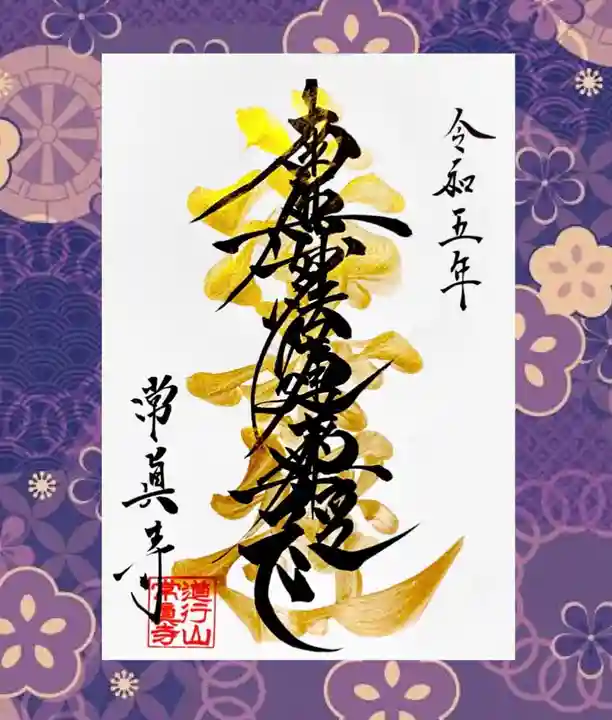 令和五年
南無妙法蓮華経
常眞寺
道行山
常眞寺